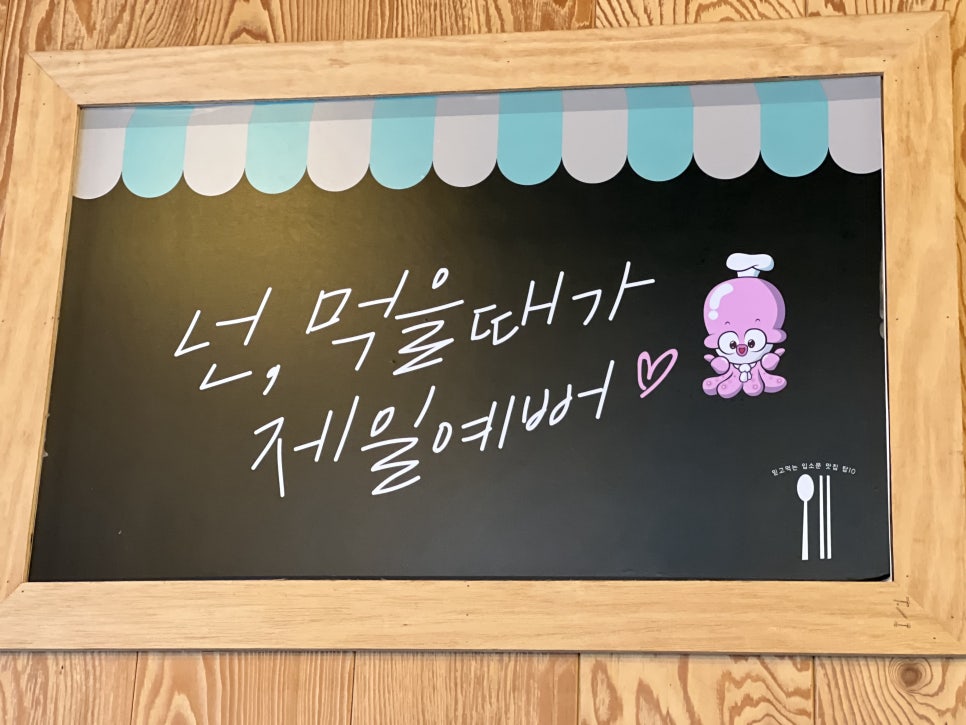 넌, 먹을때가
제일예뻐
믿고먹는 입소문 맛집 탑10